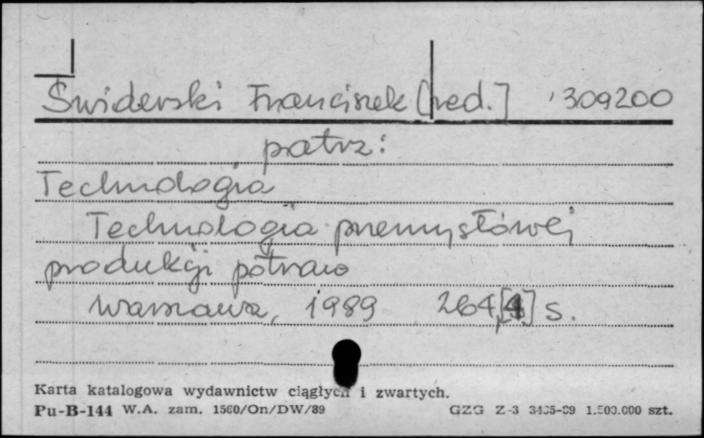 Świderski Franciszek [red.] 309200
patrz:
Technologia
Technologia przemysłowej
produkcji potraw
Warszawa, 1989 264,[4] s.
Karta katalogowa wydawnictw ciągłych i zwartych.
Pu-B-144 W.A. zam. 1560/On/DW/89 GZG Z-3 3435-89 1.500.000 szt.